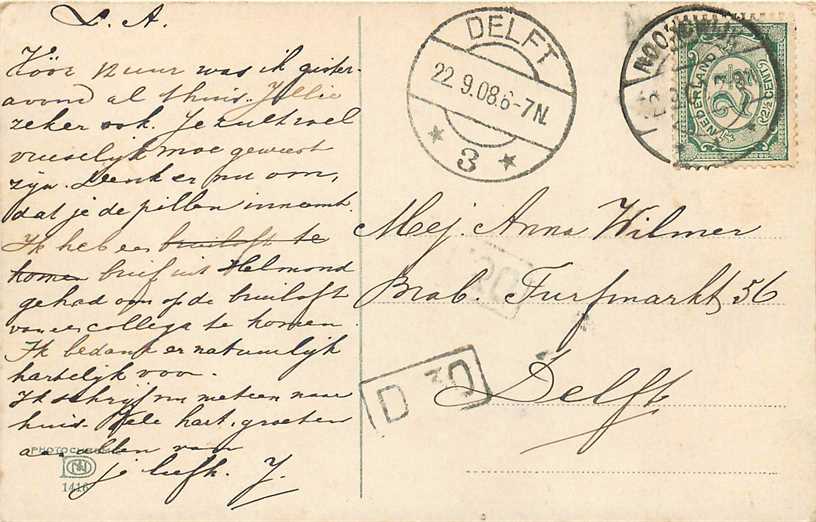 L. A.
Vóór 12 uur was ik gister-
avond al thuis. Jullie
zeker ook. Je zult wel
vreeselijk moe geweest
zijn. Denk er nu om,
dat je de pillen inneemt.
Ik heb een bruiloft te
komen brief uit Helmond
gehad om op de bruiloft
van een collega te komen.
Ik bedank er natuurlijk
hartelijk voor.
Ik schrijf nu meteen naar
huis. Vele hart. groeten
aan allen van
je liefh. J.
PHOTOCHROM
1416
DELFT
22.9.08.6-7N.
* 3 *
NOORDWIJK
NEDERLAND
2½
CENT
Mej. Anna Wilmer
Brab. Turfmarkt 56
Delft
30
D 30